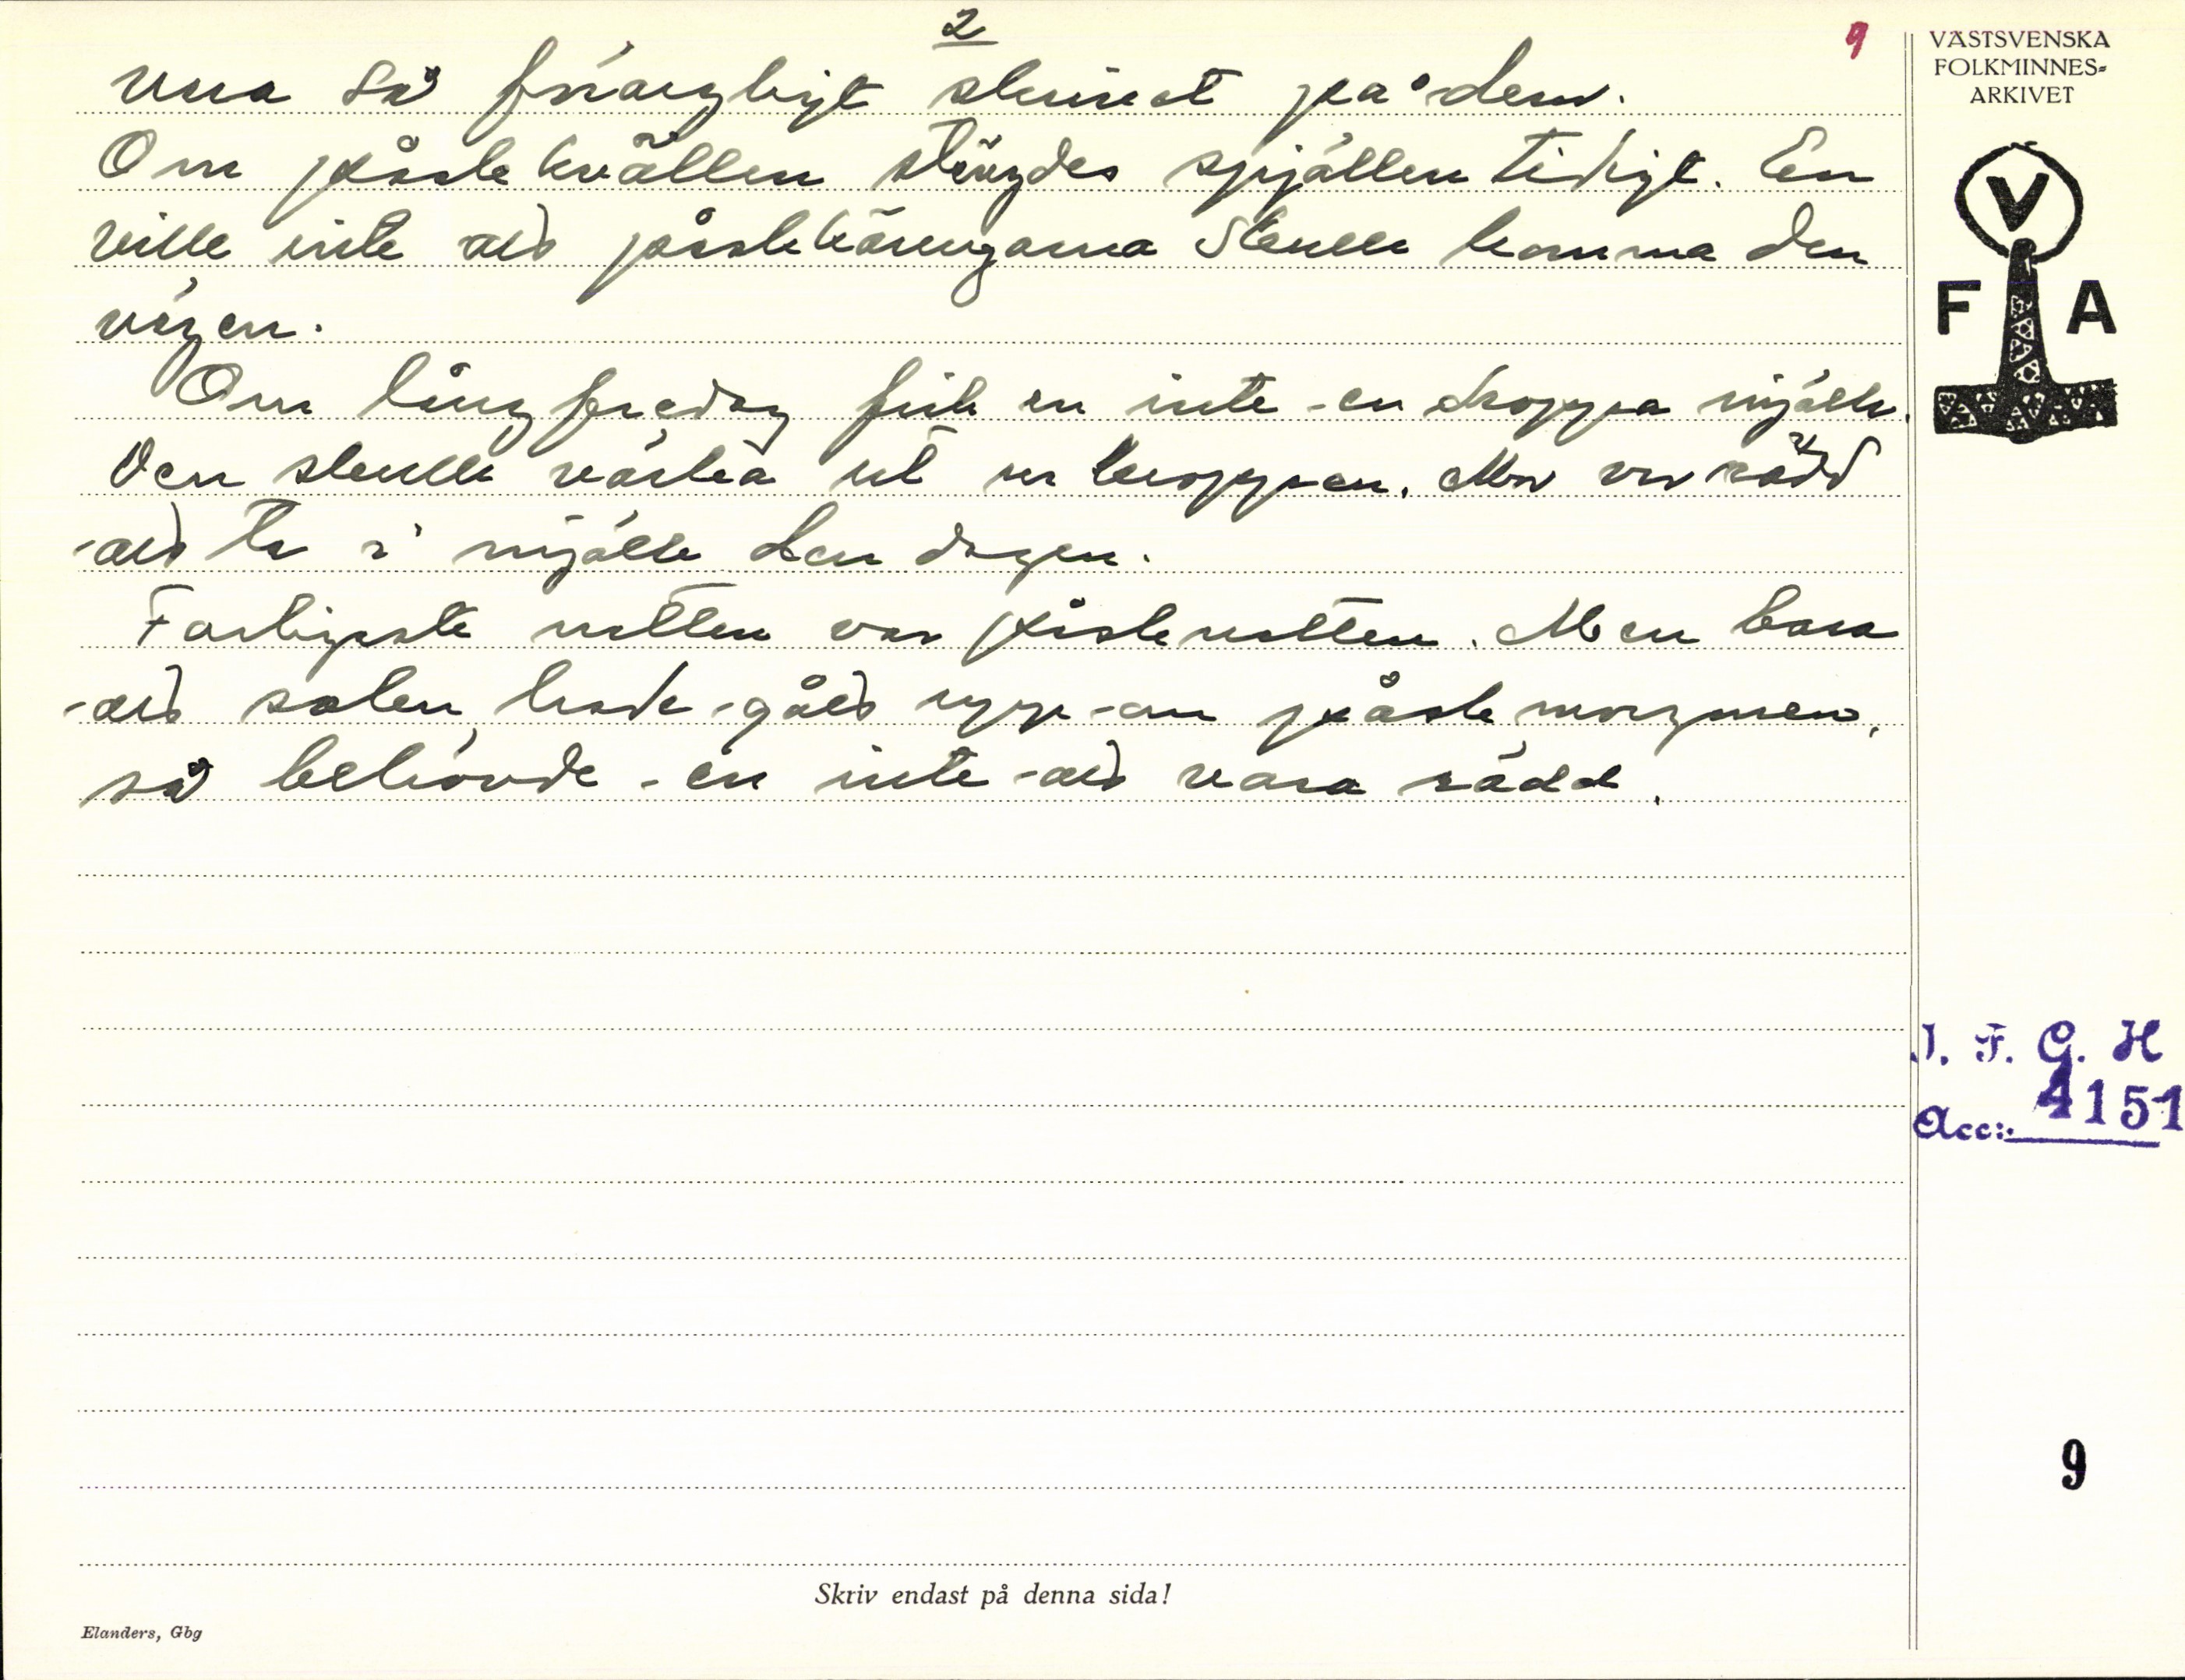 2
9
vara så förargligt skinnet på dem.
Om påskekvällen stängdes spjällen tidigt. En
ville inte att påskekäringarna skulle komma den
vägen.
Om långfredag fick en inte -en droppa mjölk.
Den skulle värka ut ur kroppen. Man var rädd
-att ta i mjölk den dagen.
Farligaste natten var påskenatten. Men bara
-att solen hade -gått upp -om påskemorgonen,
så behövde -en inte -att vara rädd.
VÄSTSVENSKA
FOLKMINNES-
ARKIVET
V
F A
I. F. G. H
4151
Acc:.
9
Skriv endast på denna sida!
Elanders, Gbg